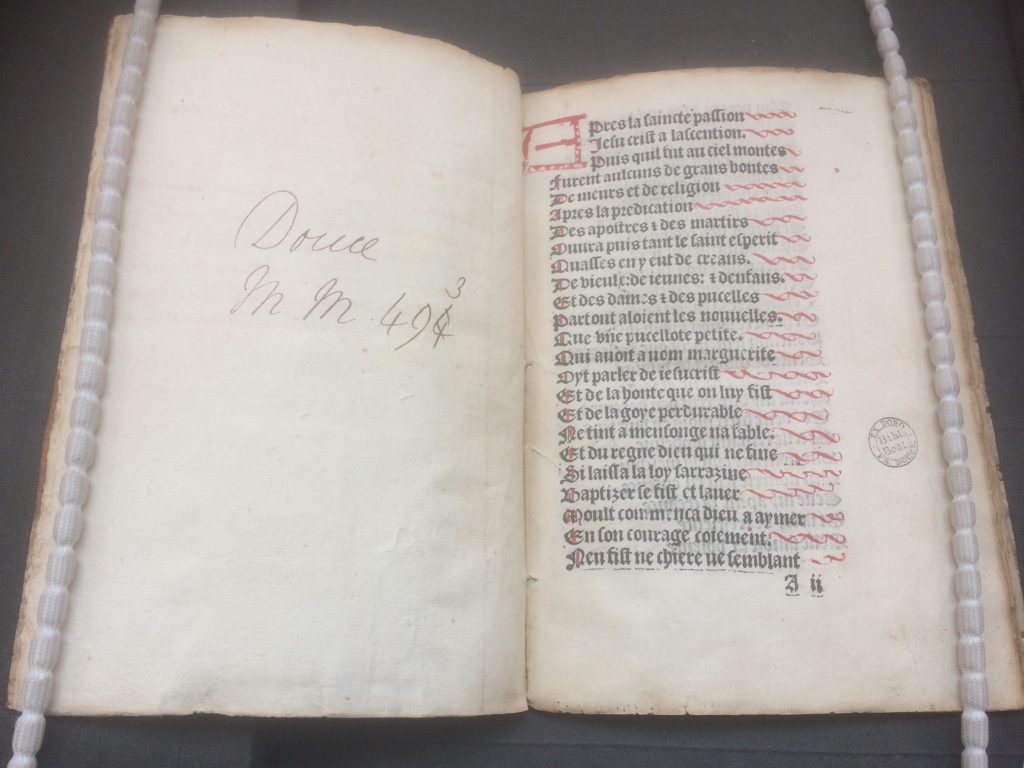 Douce
M M 49¢ 3
Apres la saincte passion
Jesu crist a lascention.
Puis quil fut au ciel montes
Furent aulcuns de grans bontes
De meurs et de religion
Apres la predication
Des apostres ⁊ des martirs
Ouura puis tant le saint esperit
Quasses en y eut de creans.
De vieulx: de ieunes: ⁊ denfans.
Et des dames ⁊ des pucelles
Partout aloient les nouuelles.
Que vne pucellote petite.
Qui auoit a nom marguerite
Oyt parler de iesucrist
Et de la honte que on luy fist
Et de la goye perdurable
Ne tint a mensonge na fable.
Et du regne dieu qui ne fine
Si laissa la loy sarrazine
Baptizer se fist et lauer
Moult commenca dieu a aymer
En son courage coiement.
Nen fist ne chiere ne semblant
A ii
EX DONO
Bibl.
Bodl.
FR. DOUCE